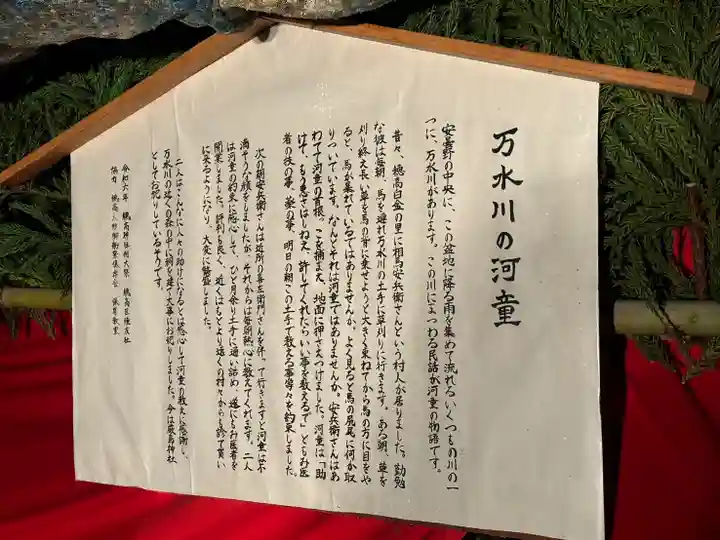 万水川の河童
安曇野の中央に、この盆地に降る雨を集めて流れるいくつもの川の一
つに、万水川があります。この川にまつわる民話が河童の物語です。
昔々、穂高白金の里に相馬安兵衛さんという村人が居りました。勤勉
な彼は毎朝、馬を連れ万水川の土手に草刈りに行きます。ある朝、草を
刈り終え長い草を馬の背に乗せようと大きく束ねてから馬の方に目をや
ると、馬が暴れているではありませんか、よく見ると馬の尻尾に何か取
りついています。なんとそれは河童ではありませんか。安兵衛さんはあ
わてて河童の首根っこを捕まえ、地面に押さえつけました。河童は「助
けて、もう悪さはしねえ、許してくれたらいい事を教えるで」ともみ医
者の技の事、薬の事、明日の朝この土手で教える事等々を約束しました。
次の朝安兵衛さんは近所の喜左衛門さんを伴って行きますと河童は不
満そうな顔をしましたが、それからは毎朝熱心に教えてくれます。二人
は河童の約束に感心して、ひと月余り土手に通い詰め、遂にもみ医者を
開業しました。評判も良く、近くはもとより遠くの村々からも診て貰い
に来るようになり、大変に繁盛しました。
二人はこんなに人々の助けになるとは感心して河童の教えに感謝し、
万水川の近くの森の中に祠を建て大事にお祀りしました。今は厳島神社
としてお祀りしているそうです。
令和六年 穂高神社例大祭 穂高区穂友社
協力 穂高人形師御船保存会